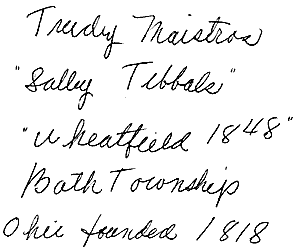 Trudy Maistros
"Sally Tibbals"
"Wheatfield 1848"
Bath Township
Ohio founded 1818